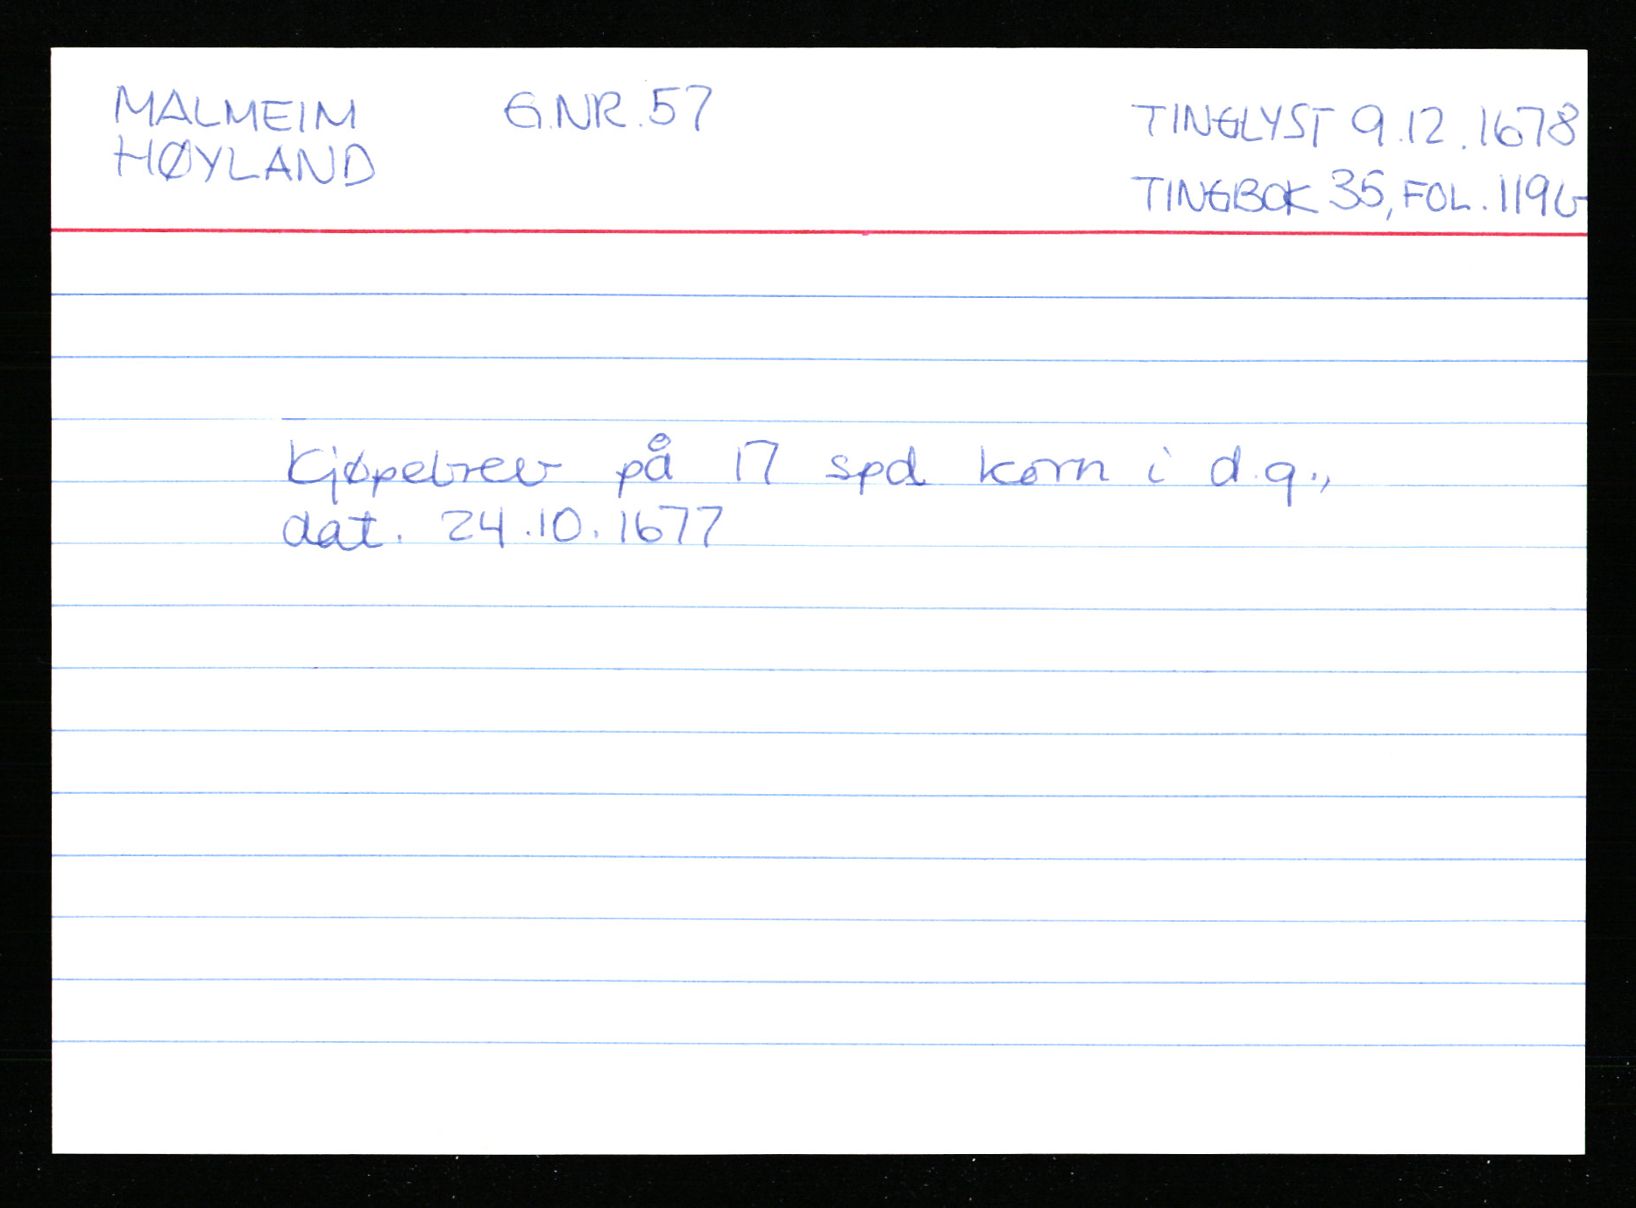 MALMEIM G.NR. 57 TINGLYST 9.12.1678
HØYLAND
TINGBOK 35, FOL. 119b
Kjøpebrev på 17 spd korn i d.g.,
dat. 24.10.1677